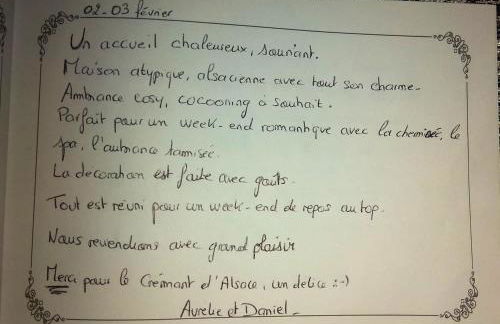 02-03 février
Un accueil chaleureux, souriant.
Maison atypique, alsacienne avec tout son charme.
Ambiance cosy, cocooning à souhait.
Parfait pour un week-end romantique avec la cheminée, le
spa, l'ambiance tamisée.
La décoration est faite avec goûts.
Tout est réuni pour un week-end de repos au top.
Nous reviendrons avec grand plaisir
Merci pour le Crémant d'Alsace, un délice :-)
Aurelie et Daniel